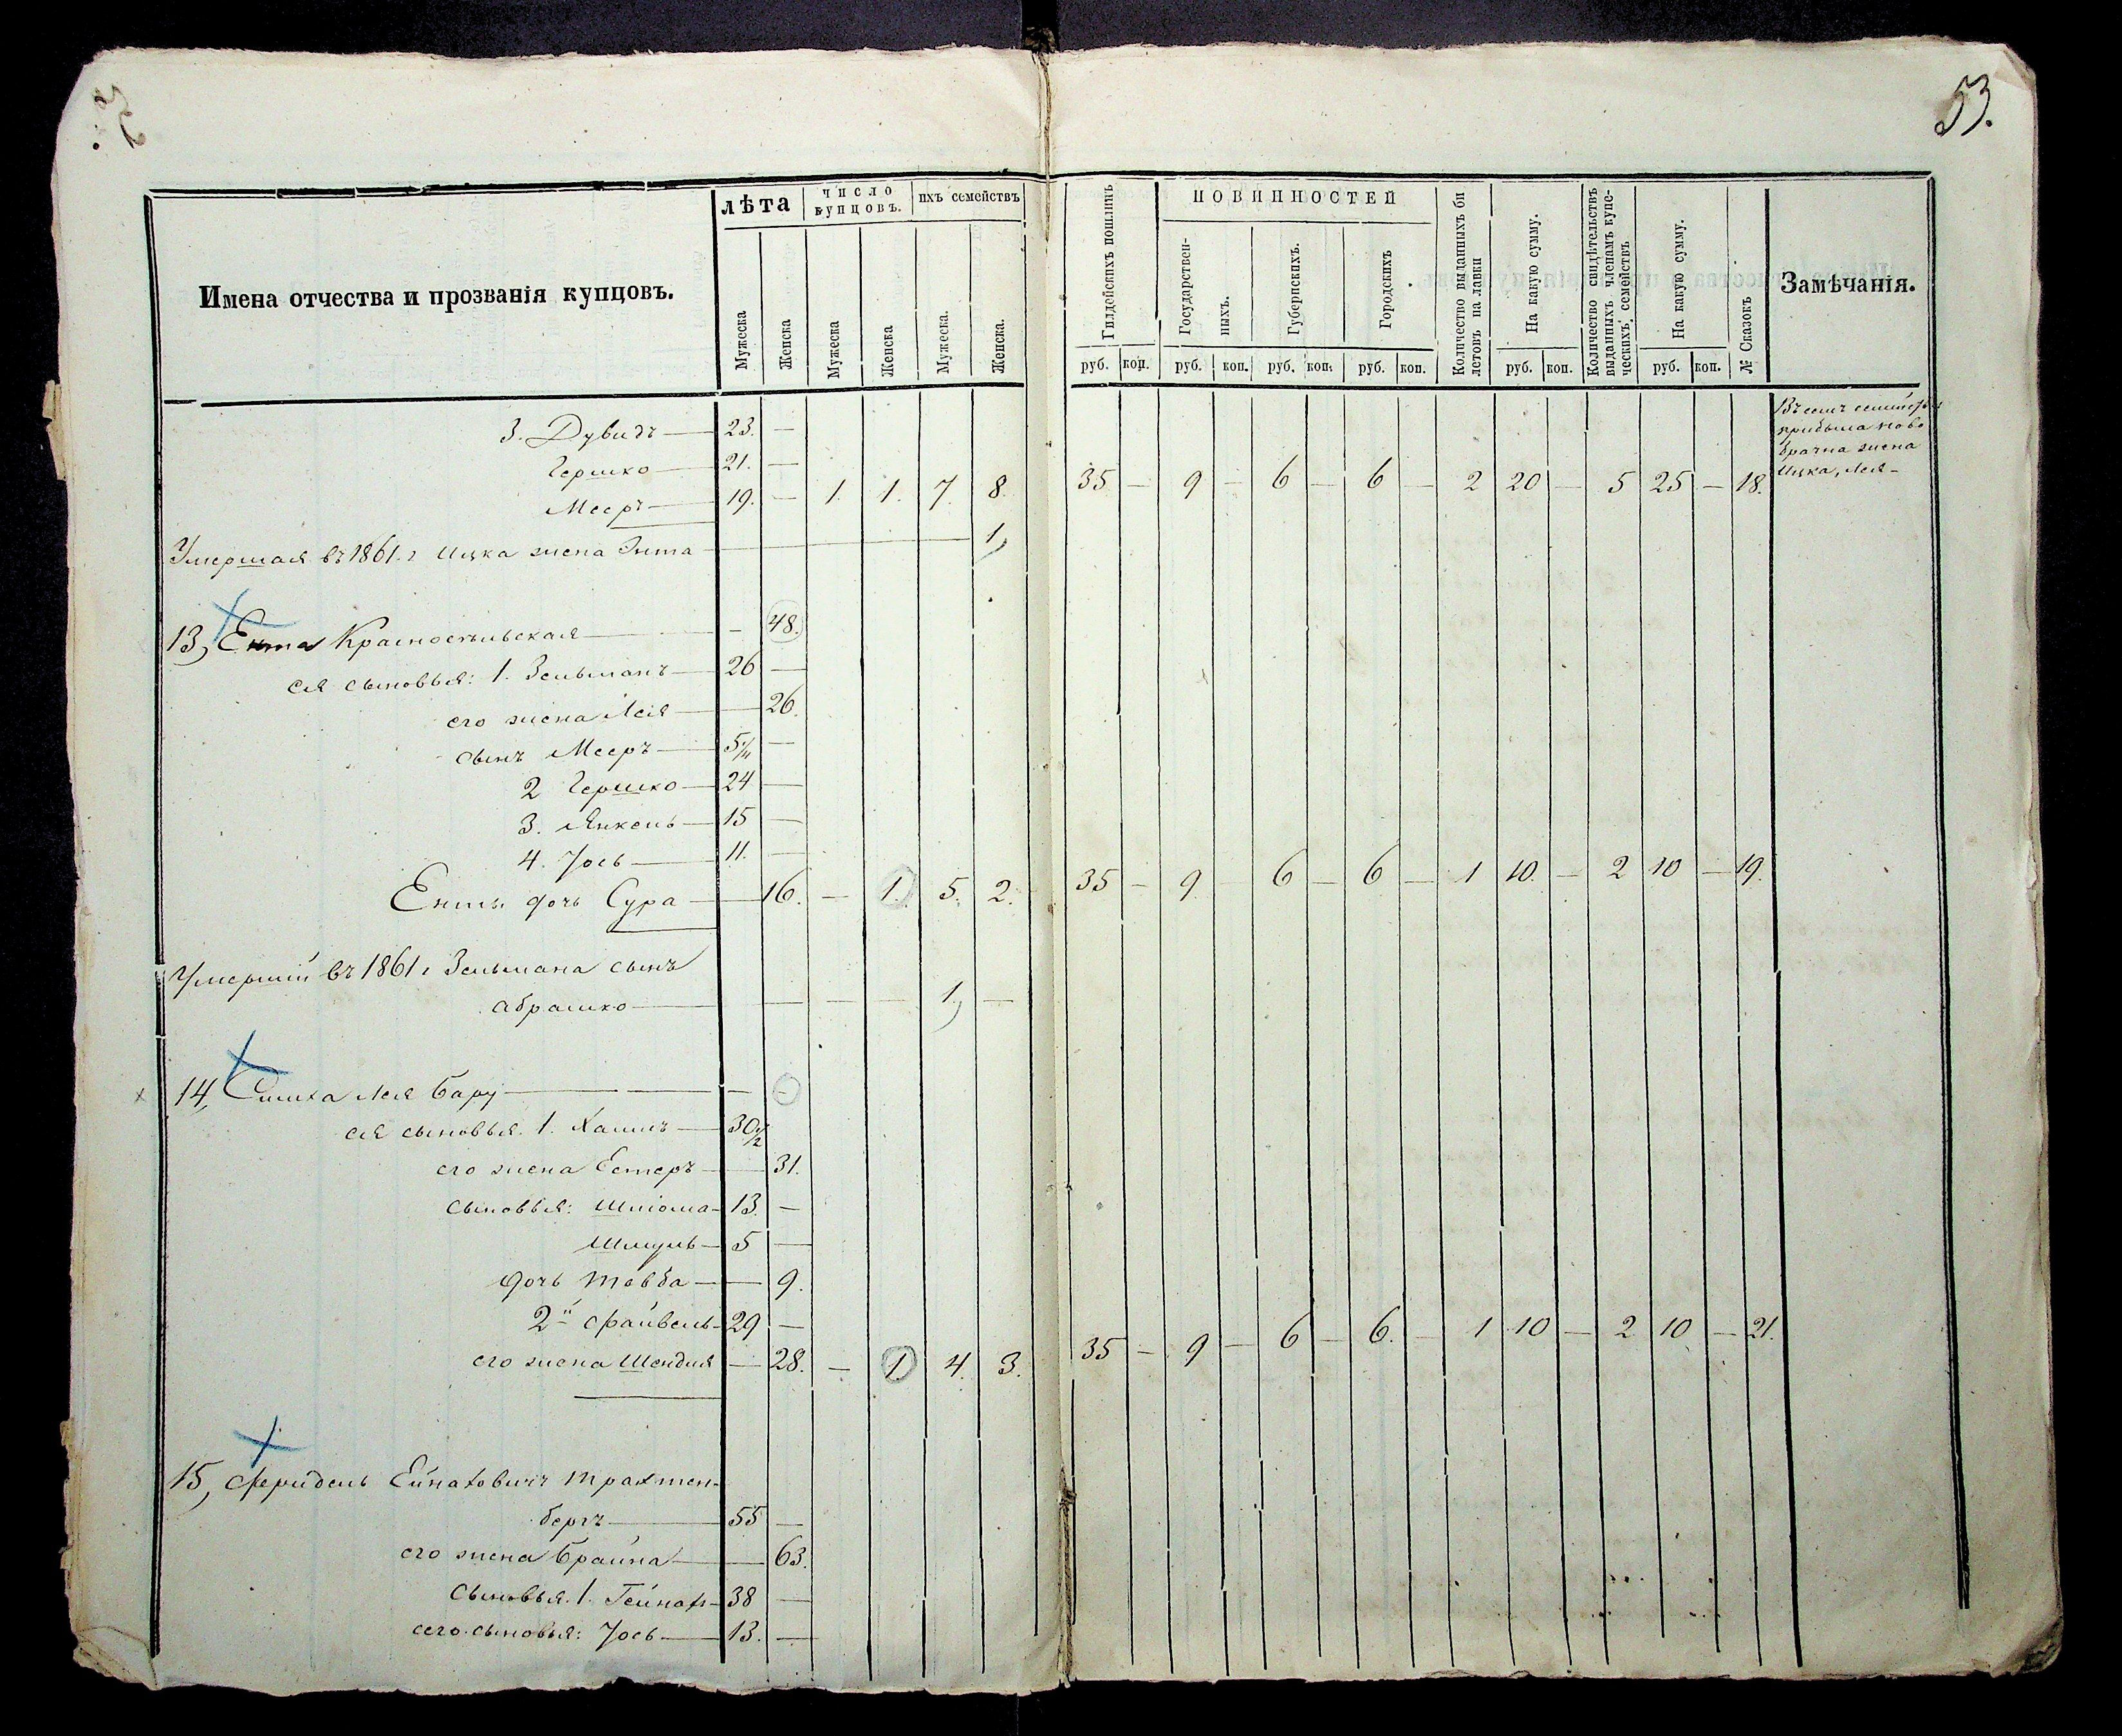 53.
Имена отчества и прозванія купцовъ.
лѣта
число купцовъ.
ихъ семействъ
Мужеска
Женска
Мужеска
Женска
Мужеска.
Женска.
Гилдейскихъ пошлинъ
ПОВИННОСТЕЙ
Государствен-
ныхъ.
Губернскихъ.
Городскихъ
Количество выданныхъ би
летовъ на лавки
На какую сумму.
Количество свидѣтельствъ
выданныхъ членамъ купе-
ческихъ семействъ
На какую сумму.
№ Сказокъ
Замѣчанія.
руб. коп. руб. коп. руб. коп. руб. коп. руб. коп. руб. коп.
3. Дувидъ — 23. —
Гершко — 21. —
Мееръ — 19. — 1. 1. 7 8. 35 — 9 — 6 — 6 — 2 20 — 5 25 — 18.
Въ семъ семействѣ
прибыла ново
брачна жена
Ицка, Лея —
Умершая въ 1861. г Ицка жена Энта — 1,
13, Ента Красносельская — — 48.
ея сыновья: 1. Зельманъ — 26 —
его жена Лея — 26.
сынъ Мееръ — 5/4 —
2 Гершко — 24 —
3. Янкель — 15 —
4. Іось — 11. —
Енты дочь Сура — 16. — 1. 5. 2. 35 — 9 — 6 — 6 — 1 10 — 2 10 — 19.
Умершій въ 1861 г Зельмана сынъ
Абрамко — — — — 1, —
14, Симха Лея Бару — — —
ея сыновья. 1. Хаимъ — 30 1/2
его жена Естеръ — 31.
сыновья: Шліома — 13. —
Шмуль — 5 —
дочь Товба — 9.
2й Файвель — 29 —
его жена Шендля — 28. — 1. 4. 3. 35 — 9 — 6 — 6. — 1 10 — 2 10 — 21.
15, Фридель Ейнаховичъ Трахтен-
бергъ — 55 —
его жена Брайна — 63.
сыновья. 1. Гейнахъ — 38 —
сего сыновья: Іось — 13. —